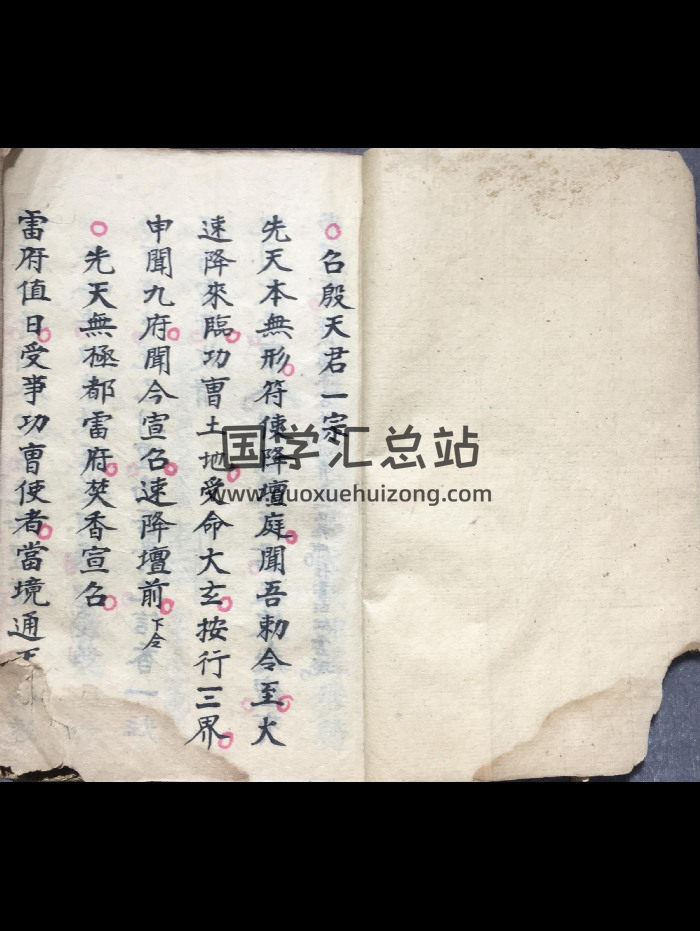 召殷天君一宗
先天本無形符使降壇庭聞吾勅令至大
速降來臨功曹土地受命大玄按行三界
申聞九府聞今宣召速降壇前下令
先天無極都雷府焚香宣召
雷府值日受事功曹使者當境通
国学汇总站
www.guoxuehuizong.com